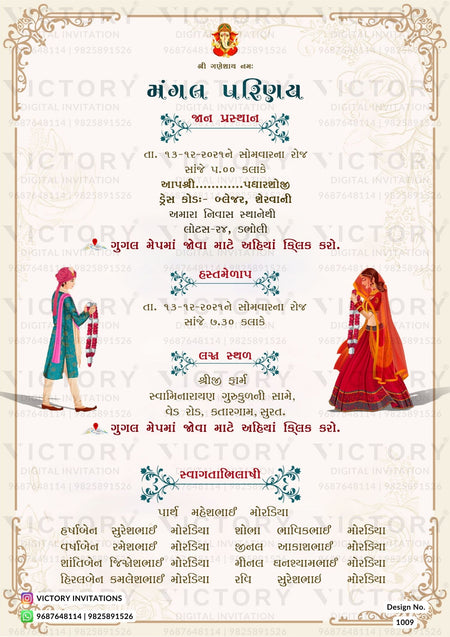 શ્રી ગણેશાય નમઃ
મંગલ પરિણય
જાન પ્રસ્થાન
તા. ૧૩-૧૨-૨૦૨૧ને સોમવારના રોજ
સાંજે ૫.૦૦ કલાકે
આપશ્રી............પધારશોજી
ડ્રેસ કોડઃ- બ્લેજર, શેરવાની
અમારા નિવાસ સ્થાનેથી
લોટસ-૨૪, ડભોલી
ગુગલ મેપમાં જોવા માટે અહિયાં ક્લિક કરો.
હસ્તમેળાપ
તા. ૧૩-૧૨-૨૦૨૧ને સોમવારના રોજ
સાંજે ૭.૩૦ કલાકે
લગ્ન સ્થળ
શ્રીજી ફાર્મ
સ્વામિનારાયણ ગુરુકુળની સામે,
વેડ રોડ, કતારગામ, સુરત.
ગુગલ મેપમાં જોવા માટે અહિયાં ક્લિક કરો.
સ્વાગતાભિલાષી
પાર્થ મહેશભાઈ મોરડિયા
હર્ષાબેન સુરેશભાઈ મોરડિયા શોભા ભાવિકભાઈ મોરડિયા
વર્ષાબેન રમેશભાઈ મોરડિયા જીનલ આકાશભાઈ મોરડિયા
શાંતિબેન જિજ્ઞેશભાઈ મોરડિયા મીનલ ઘનશ્યામભાઈ મોરડિયા
હિરલબેન કમલેશભાઈ મોરડિયા રવિ સુરેશભાઈ મોરડિયા
VICTORY INVITATIONS
9687648114 | 9825891526
Design No.
1009
VICTORY
DIGITAL INVITATION
9687648114 | 9825891526